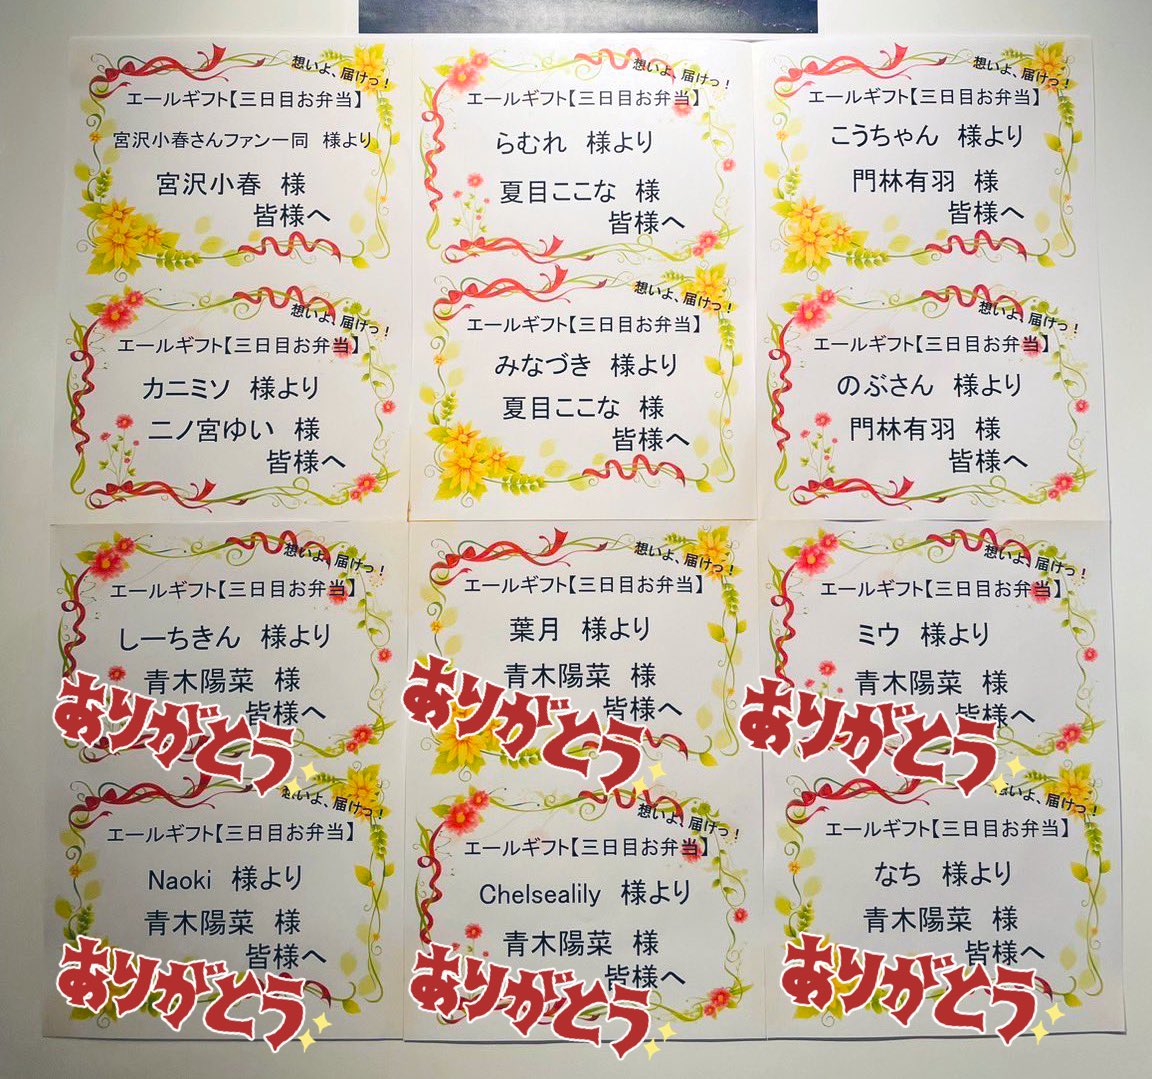 想いよ、届けっ！
エールギフト【三日目お弁当】
宮沢小春さんファン一同　様より
宮沢小春　様
皆様へ
想いよ、届けっ！
エールギフト【三日目お弁当】
らむれ　様より
夏目ここな　様
皆様へ
想いよ、届けっ！
エールギフト【三日目お弁当】
こうちゃん　様より
門林有羽　様
皆様へ
想いよ、届けっ！
エールギフト【三日目お弁当】
カニミソ　様より
二ノ宮ゆい　様
皆様へ
想いよ、届けっ！
エールギフト【三日目お弁当】
みなづき　様より
夏目ここな　様
皆様へ
想いよ、届けっ！
エールギフト【三日目お弁当】
のぶさん　様より
門林有羽　様
皆様へ
想いよ、届けっ！
エールギフト【三日目お弁当】
しーちきん　様より
青木陽菜　様
皆様へ
ありがとう
想いよ、届けっ！
エールギフト【三日目お弁当】
葉月　様より
青木陽菜　様
皆様へ
ありがとう
想いよ、届けっ！
エールギフト【三日目お弁当】
ミウ　様より
青木陽菜　様
皆様へ
ありがとう
想いよ、届けっ！
エールギフト【三日目お弁当】
Naoki　様より
青木陽菜　様
皆様へ
ありがとう
想いよ、届けっ！
エールギフト【三日目お弁当】
Chelsealily　様より
青木陽菜　様
皆様へ
ありがとう
想いよ、届けっ！
エールギフト【三日目お弁当】
なち　様より
青木陽菜　様
皆様へ
ありがとう